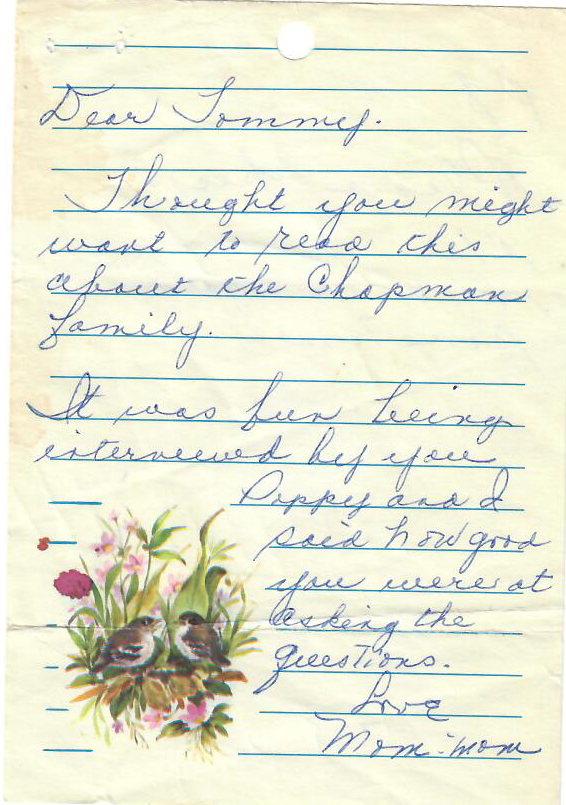 Dear Tommy.
Thought you might
want to read this
about the Chapman
family.
It was fun being
interviewed by you
Poppy and I
said how good
you were at
asking the
questions.
Love
Mom-mom